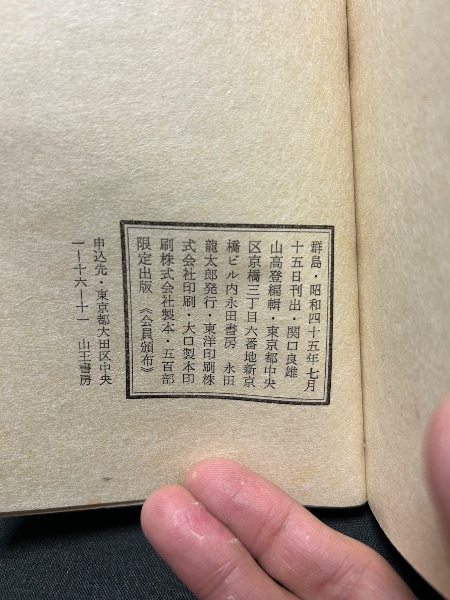 群島・昭和四十五年七月
十五日刊出・関口良雄
山高登編輯・東京都中央
区京橋三丁目六番地新京
橋ビル内永田書房　永田
龍太郎発行・東洋印刷株
式会社印刷・大口製本印
刷株式会社製本・五百部
限定出版　《会員頒布》
申込先・東京都大田区中央
一ー十六ー十一　山王書房